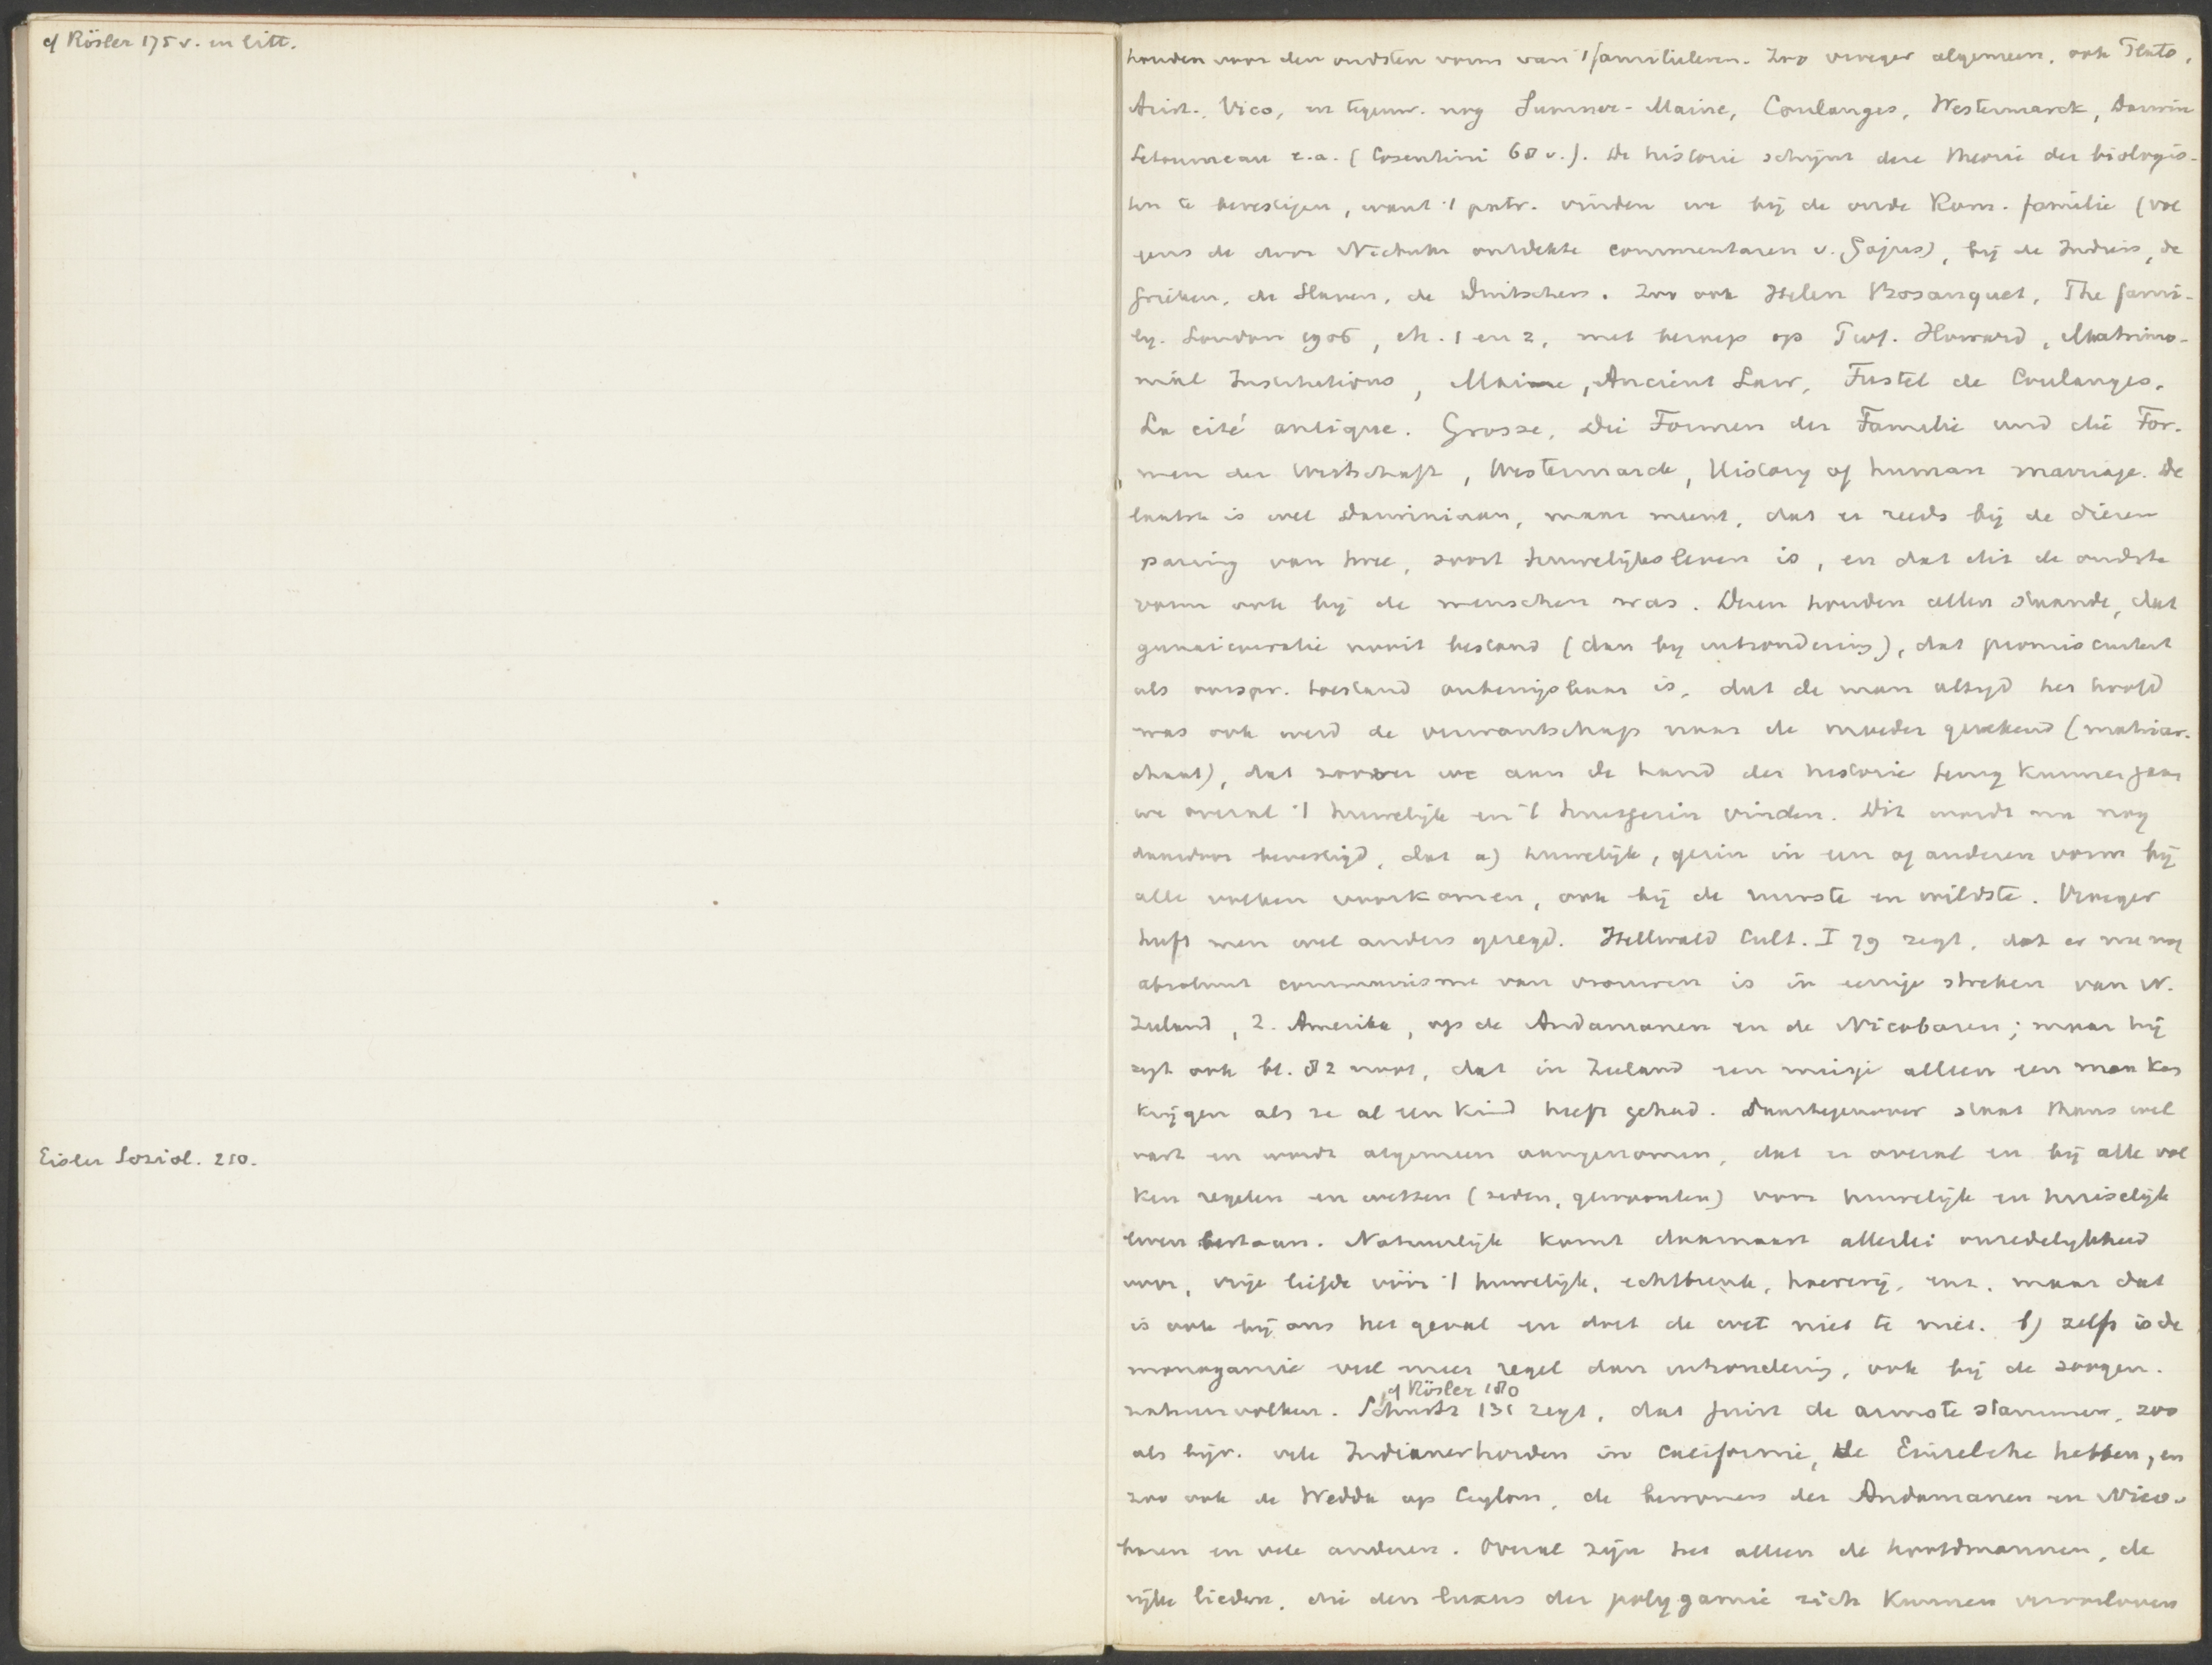 cf Rösler 175 v. en litt.
Eisler Soziol. 210.
houden voor den oudsten vorm van 't familieleven. Zoo vroeger algemeen, ook Plato,
Arist., Vico, en tegenw. nog Sumner-Maine, Coulanges, Westermarck, Darwin
Letourneau e.a. (Cosentini 68 v.). De historie schijnt deze theorie der biologis-
ten te bevestigen, want 't patr. vinden we bij de oude Rom. familie (vol
gens de door Niebuhr ontdekte commentaren v. Gajus), bij de Indiers, de
Grieken, de Slaven, de Duitschers. Zoo ook Helen Bosanquet, The fami-
ly. London 1906, ch. 1 en 2, met beroep op Prof. Howard, Matrimo-
nial Institutions, Maine, Ancient Law, Fustel de Coulanges,
La cité antique. Grosse, Die Formen der Familie und die For-
men der Wirtschaft, Westermarck, History of human marriage. De
laatste is wel Darwiniaan, maar meent, dat er reeds bij de dieren
paring van twee, soort huwelijksleven is, en dat dit de oudste
vorm ook bij de menschen was. Dezen houden allen staande, dat
gunaicocratie nooit bestond (dan bij uitzondering), dat promiscuiteit
als oorspr. toestand onbewijsbaar is, dat de man altijd het hoofd
was ook werd de verwantschap naar de moeder gerekend (matriar-
chaat), dat zoover we aan de hand der historie terug kunnen gaan
we overal 't huwelijk en 't huisgezin vinden. Dit wordt nu nog
daardoor bevestigd, dat a) huwelijk, gezin in een of anderen vorm bij
alle volken voorkomen, ook bij de ruwste en wildste. Vroeger
heeft men wel anders gezegd. Hellwald Cult. I 79 zegt, dat er nu nog
absoluut communisme van vrouwen is in eenige streken van N.
Zeeland, Z. Amerika, op de Andamanen en de Nicobaren; maar hij
zegt ook bl. 82 noot, dat in Zeeland een meisje alleen een man kan
krijgen als ze al een kind heeft gehad. Daartegenover staat thans wel
vast en wordt algemeen aangenomen, dat er overal en bij alle vol
ken regelen en wetten (zeden, gewoonten) voor huwelijk en huiselijk
leven bestaan. Natuurlijk komt daarnaast allerlei onzedelijkheid
voor, vrije liefde vóór 't huwelijk, echtbreuk, hoererij, enz. maar dat
is ook bij ons het geval en doet de wet niet te niet. b) zelfs is de
monogamie veel meer regel dan uitzondering, ook bij de zoogen.
cf Rösler 180
natuurvolken. Schurtz 131 zegt, dat juist de armste stammen, zoo
als bijv. vele Indianerhorden in Californie, de Eurelche hebben, en
zoo ook de Wedda op Ceylon, de bewoners der Andamanen en Nico-
baren en vele anderen. Overal zijn het alleen de hoofdmannen, de
rijke lieden, die den luxus der polygamie zich kunnen veroorloven